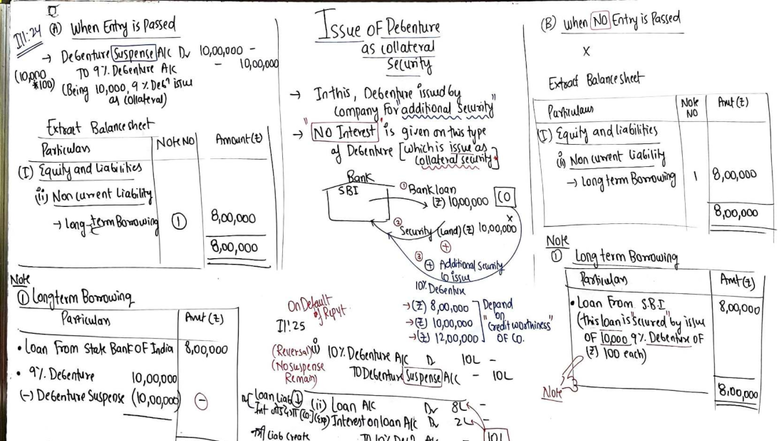 Ill:24
(A) When Entry is Passed
→ Debenture Suspense A/c Dr 10,00,000 -
(10,000 *100) TO 9% Debenture A/c - 10,00,000
(Being 10,000, 9% Deb? issue
as collateral)
Extract Balance sheet
Particulars Note NO Amount (₹)
(I) Equity and Liabilities
(ii) Non current Liability
→ Long-term Borrowing ① 8,00,000
8,00,000
Note
① Longterm Borrowing
Particulars Amt (₹)
• Loan From State Bank OF India 8,00,000
• 9% Debenture 10,00,000
(-) Debenture Suspense (10,00,000) -
8,00,000
Issue of Debenture
as collateral
Security
→ In this, Debenture issued by
company For "additional Security"
→ "NO Interest" is given on this type
of Debenture [which is issue as
collateral security]
Bank
SBI
① Bank loan
→ (₹) 10,00,000 CO
x
② Security (Land) (₹) 10,00,000
+
③ + Additional Security
10 issue
10% Debenture
→ (₹) 8,00,000
→ (₹) 10,00,000
→ (₹) 12,00,000
Depend
on
"Creditworthiness"
OF CO.
On Default
of Reput
Ill:25
(Reversal) (i) 10% Debenture A/c Dr 10L -
(No suspense
Remain)
TO Debenture Suspense A/c - 10L
(ii) Loan A/c Dr 8L -
Interest on loan A/c Dr 2L -
TO 10% Deb? A/c 10L
(B) When NO Entry is Passed
x
Extract Balance sheet
Particulars Note NO Amt (₹)
(I) Equity and Liabilities
(ii) Non current Liability
→ Long term Borrowing 1 8,00,000
8,00,000
Note
① Long term Borrowing
Particulars Amt (₹)
• Loan From S.B.I 8,00,000
(this loan is "secured" by issue
OF 10,000 9% Debenture OF
(₹) 100 each)
Note
8,00,000